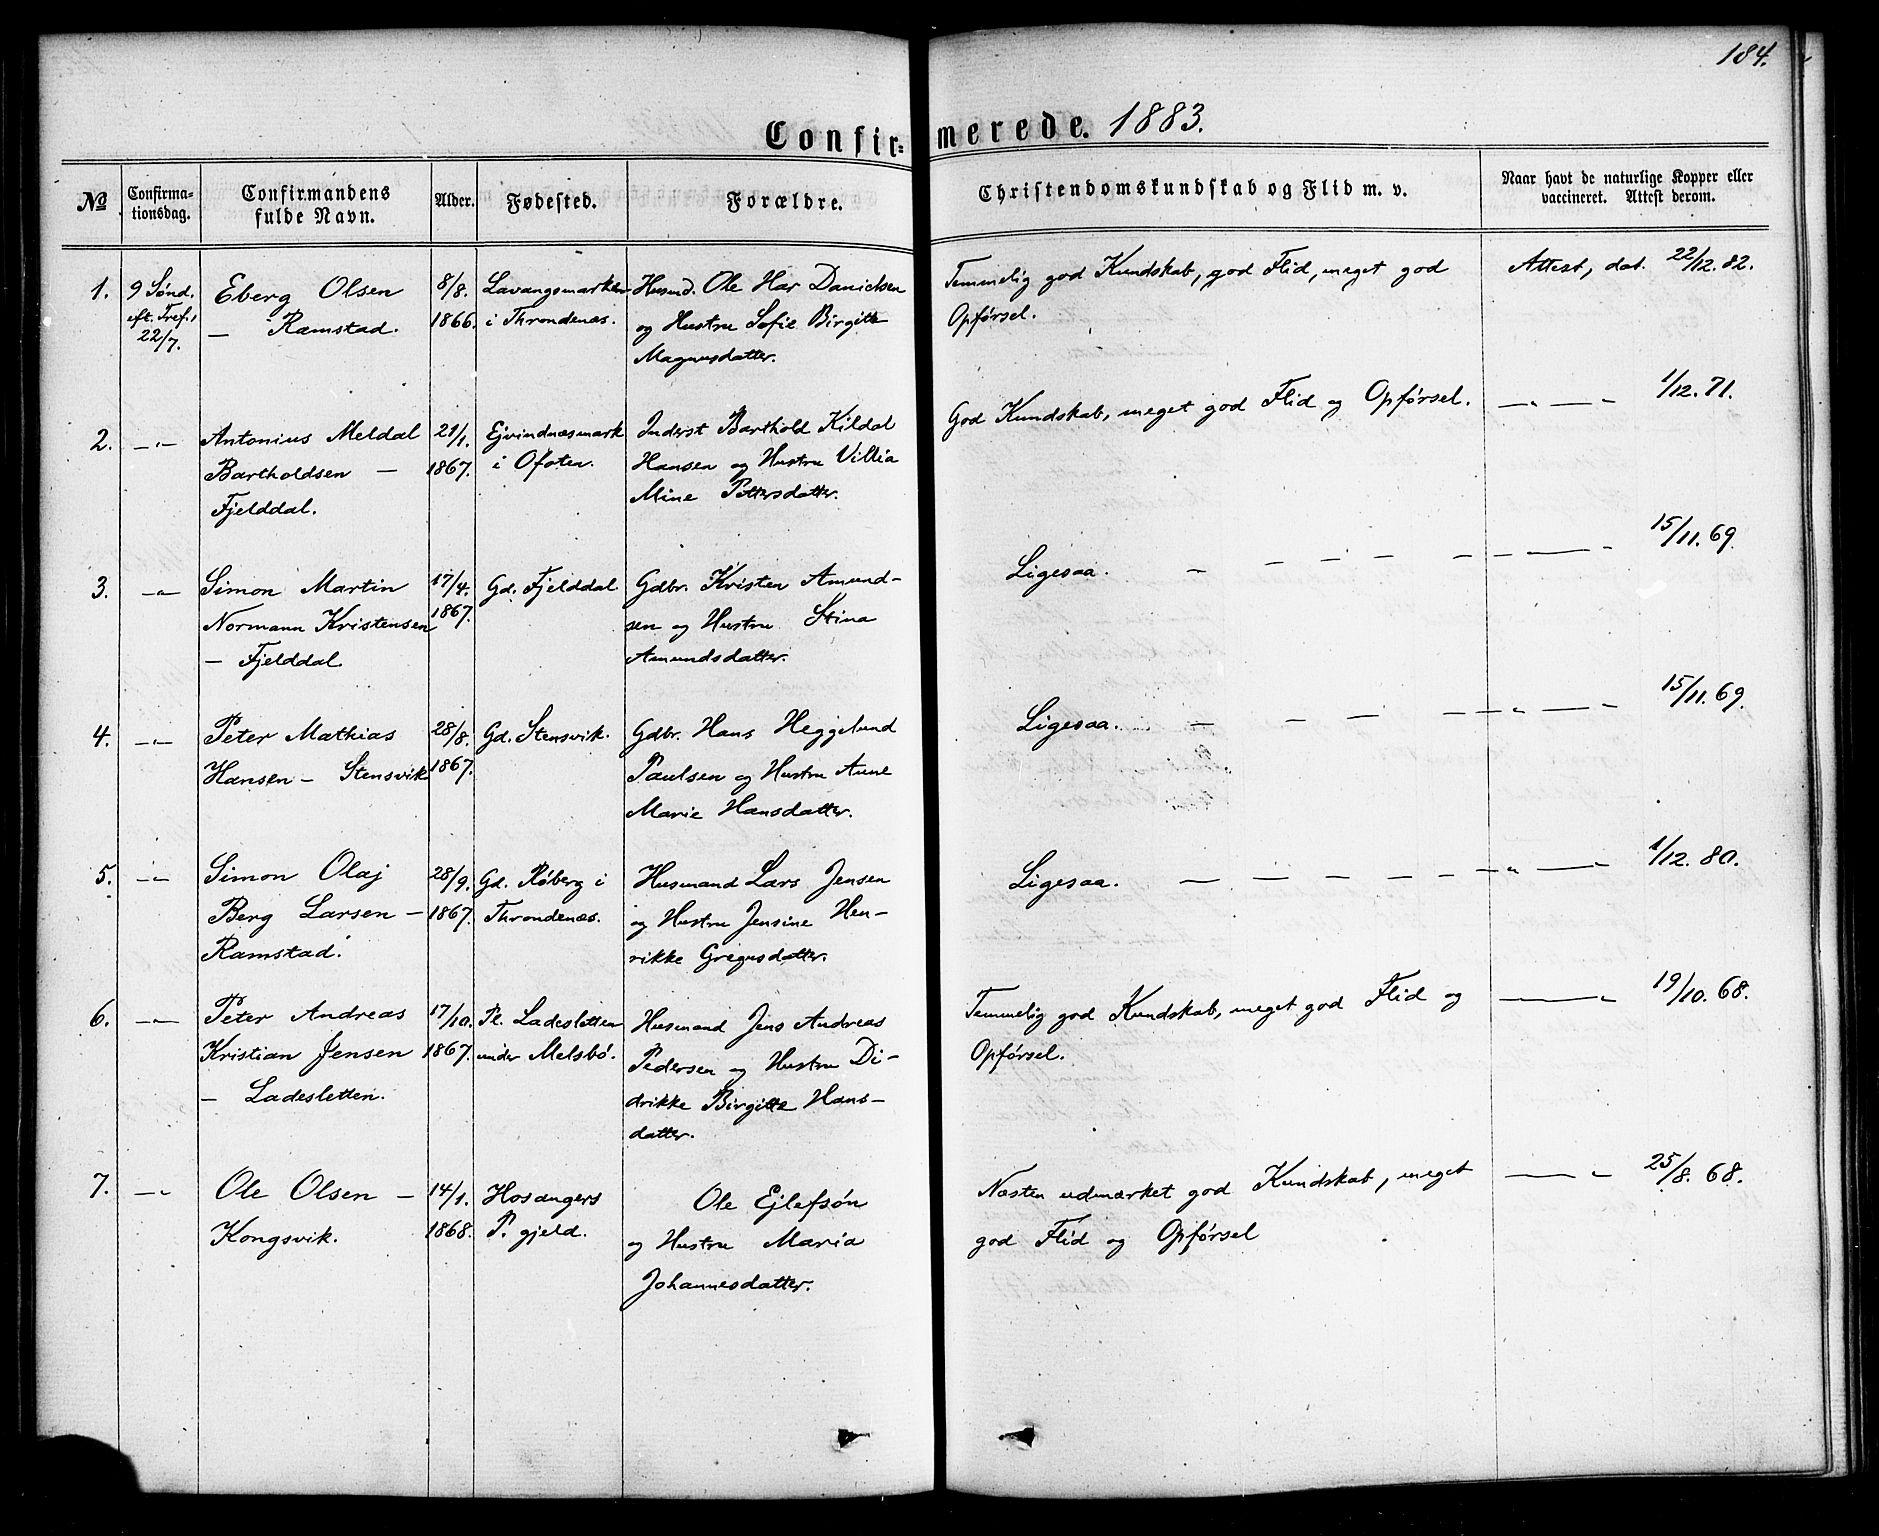 184.
Confirmerede. 1883.
No
Confirma-
tionsdag.
Confirmandens
fulde Navn.
Alder.
Fødested.
Forældre.
Christendomskundskab og Flid m. v.
Naar havt de naturlige Kopper eller
vaccineret. Attest derom.
1. 9 Sønd. Eberg Olsen 8/8. Lavangsmarken Husmd. Ole Har Danielsen Temmelig god Kundskab, god Flid, meget god Attest, dat. 22/12. 82.
eft. Tref. — Ramstad. 1866. i Throndenæs. og Hustru Sofie Birgitte Opførsel.
22/7. Magnusdatter.
2. —"— Antonius Meldal 21/1. Ejvindnæsmark Inderst Barthold Kildal God Kundskab, meget god Flid og Opførsel. —"— " — 1/12. 71.
Bartholdsen — 1867. i Ofoten. Hansen og Hustru Villia
Fjelddal. Mine Pettersdatter.
3. —"— Simon Martin 17/4. Gd. Fjelddal Gdbr. Kristen Amund- Ligesaa. — — — — — — — " 15/11. 69.
Normann Kristensen 1867. sen og Hustru Stina
— Fjelddal. Amundsdatter.
4. —"— Peter Mathias 28/8. Gd. Stensvik. Gdbr. Hans Heggelund Ligesaa. — — — — — " — " 15/11. 69.
Hansen — Stensvik 1867. Paulsen og Hustru Anne
Marie Hansdatter.
5. —"— Simon Olaj 28/9. Gd. Røberg i Husmand Lars Jensen Ligesaa. — — — — — — — " — " 1/12. 80.
Berg Larsen — 1867. Throndenæs. og Hustru Jensine Hen-
Ramstad. rikke Gregusdatter.
6. —"— Peter Andreas 17/10. Pl. Ladesletten Husmand Jens Andreas Temmelig god Kundskab, meget god Flid og — " 19/10. 68.
Kristian Jensen 1867. under Melsbø. Pedersen og Hustru Di- Opførsel.
— Ladesletten. drikke Birgitte Hans-
datter.
7. —"— Ole Olsen — 14/1. Hosangers Ole Ejlefsøn Næsten udmærket god Kundskab, meget — " 25/8. 68.
Kongsvik. 1868. P. gjeld. og Hustru Maria god Flid og Opførsel
Johannesdatter.